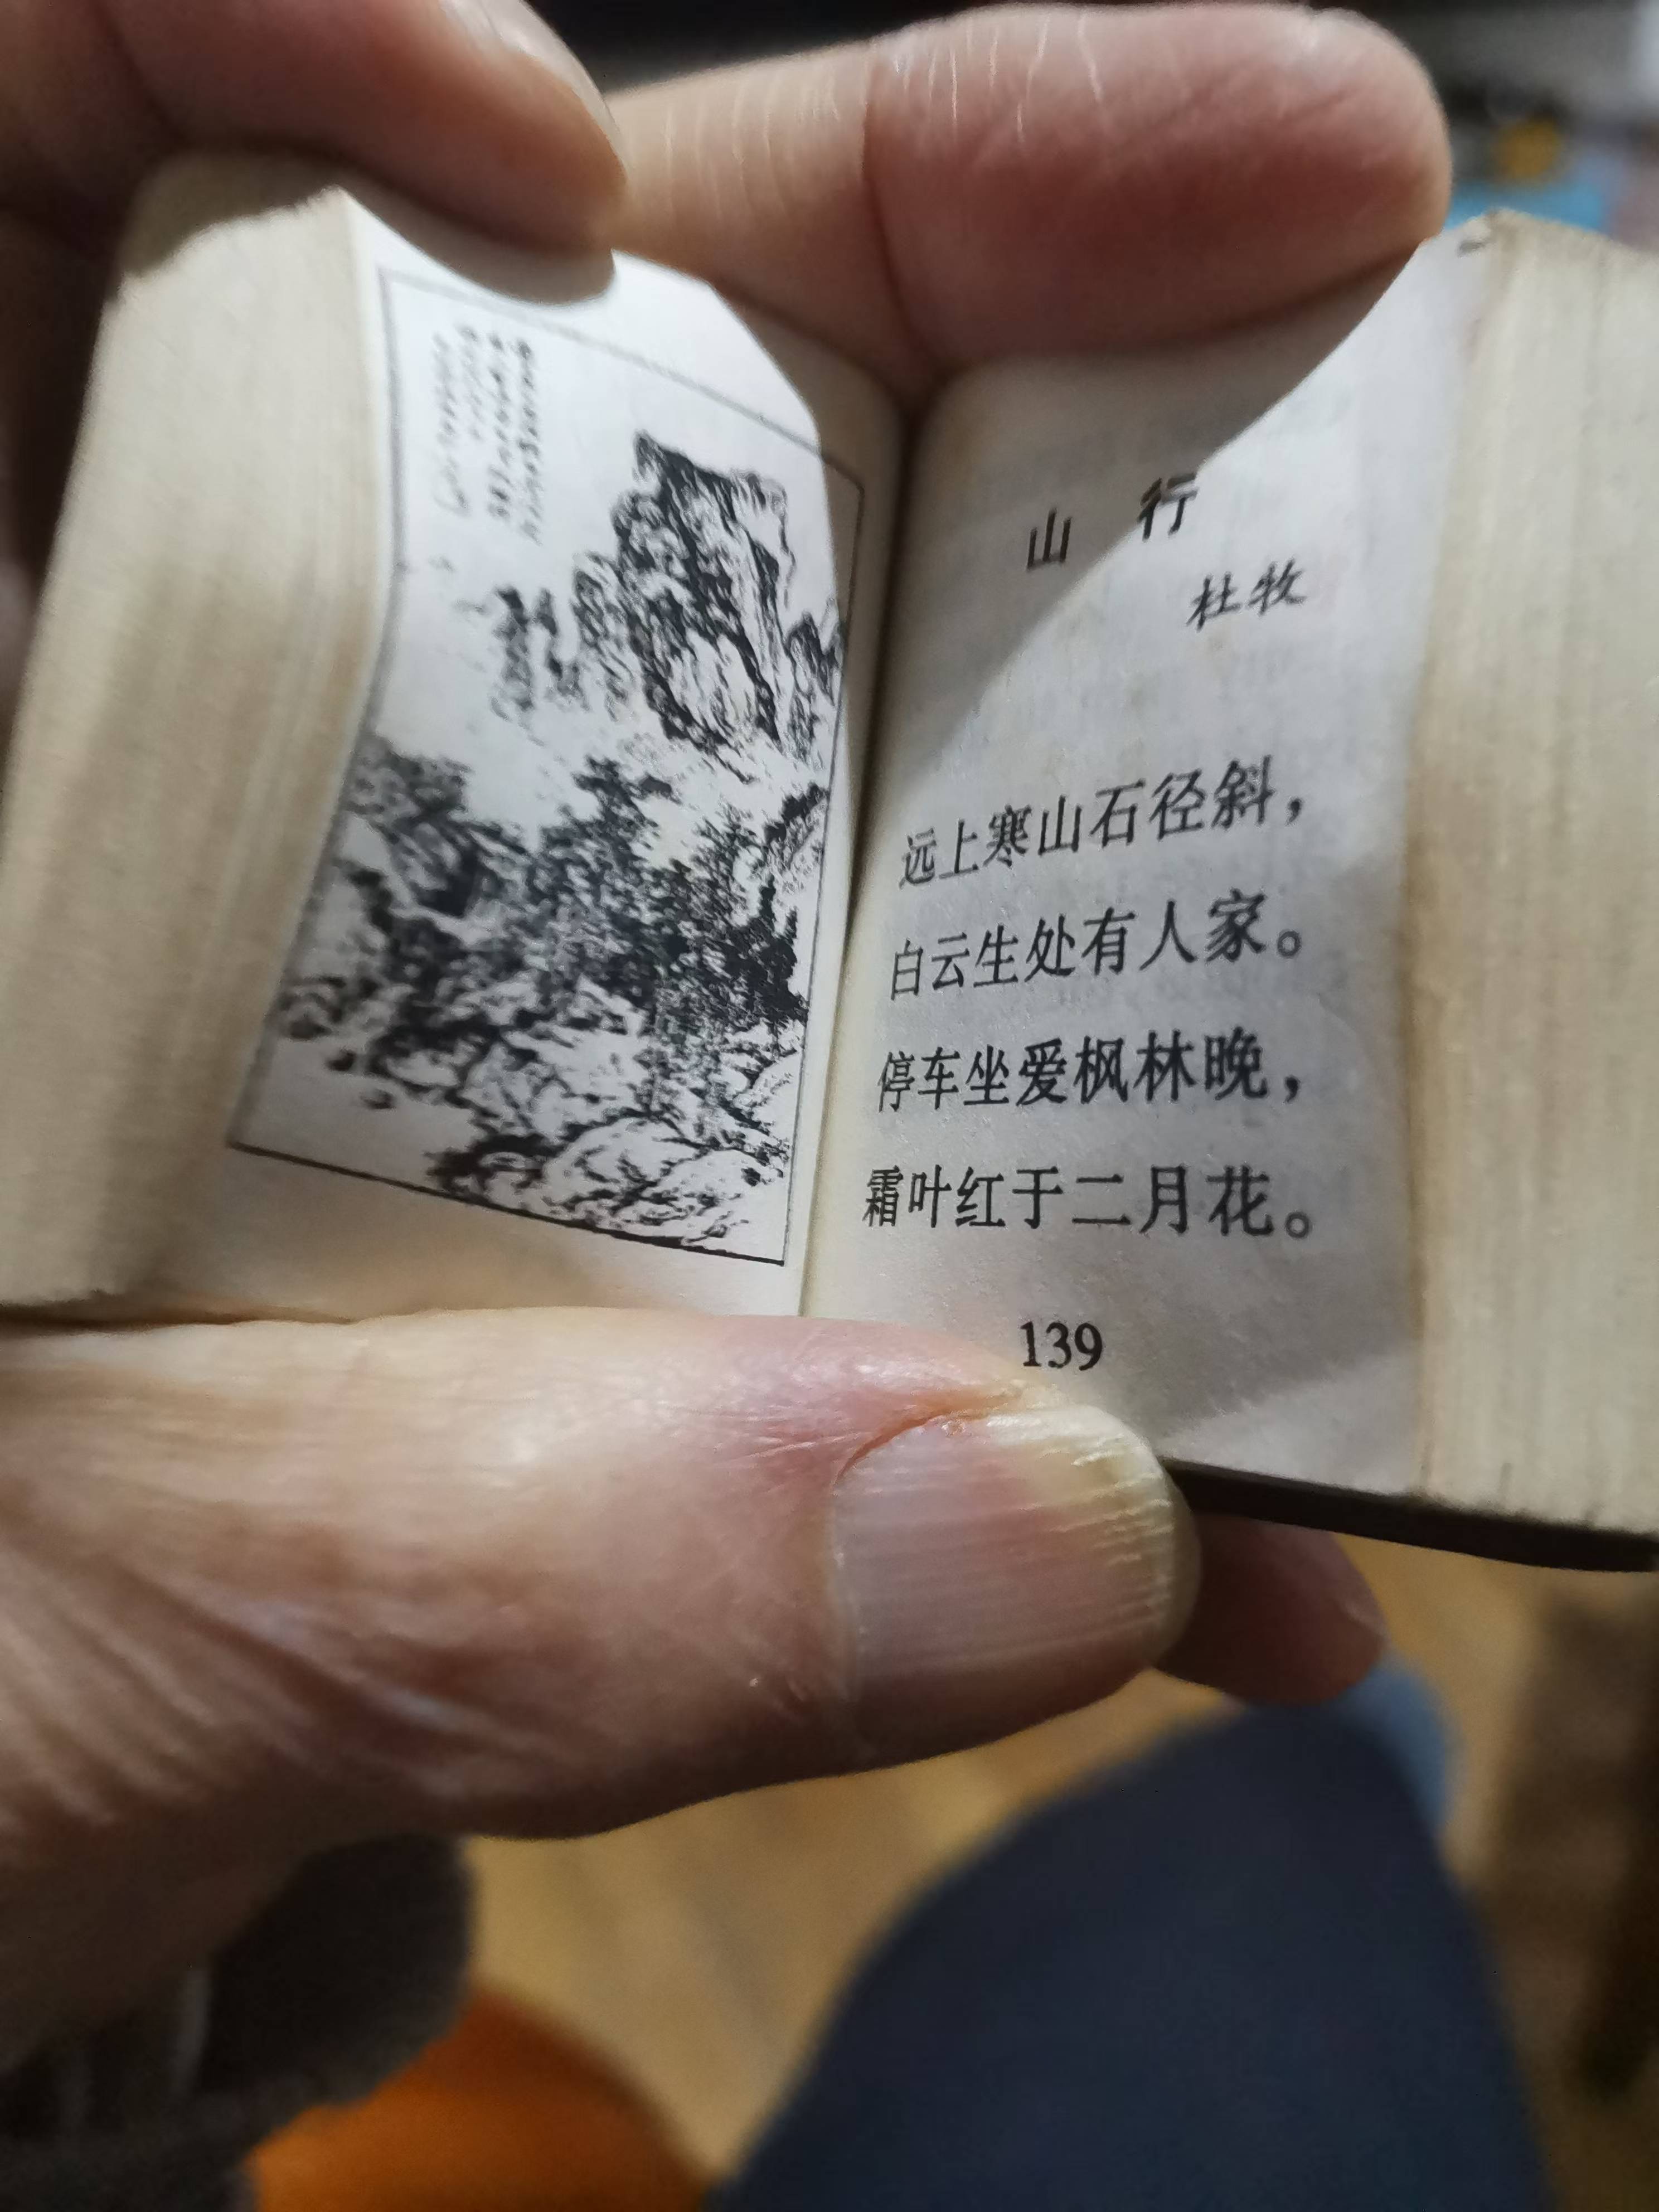 山 行
杜牧
远上寒山石径斜，
白云生处有人家。
停车坐爱枫林晚，
霜叶红于二月花。
139